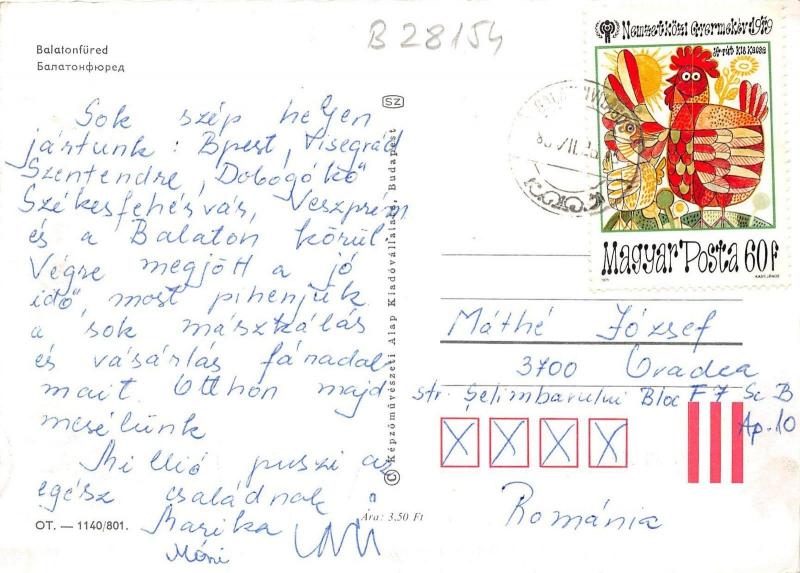 B 28154
Balatonfüred
Балатонфюред
Sok szép helyen
jártunk: Bpest, Visegrád
Szentendre, Dobogókő
Székesfehérvár, Veszprém
és a Balaton körül
Végre megjött a jó
idő, most pihenjük
a sok mászkálás
és vásárlás fáradal
mait. Otthon majd
mesélünk
Millió puszi az
egész családnak
Marika
Móni
OT. — 1140/801.
Ára: 3,50 Ft
SZ
© Képzőművészeti Alap Kiadóvállalata, Budapest
Nemzetközi Gyermekév 1979
Kis Kacsa
Magyar Posta 60f
Máthé József
3700 Oradea
str. Șelimbarului Bloc F7 Sc B
Ap. 10
X X X X
Románia